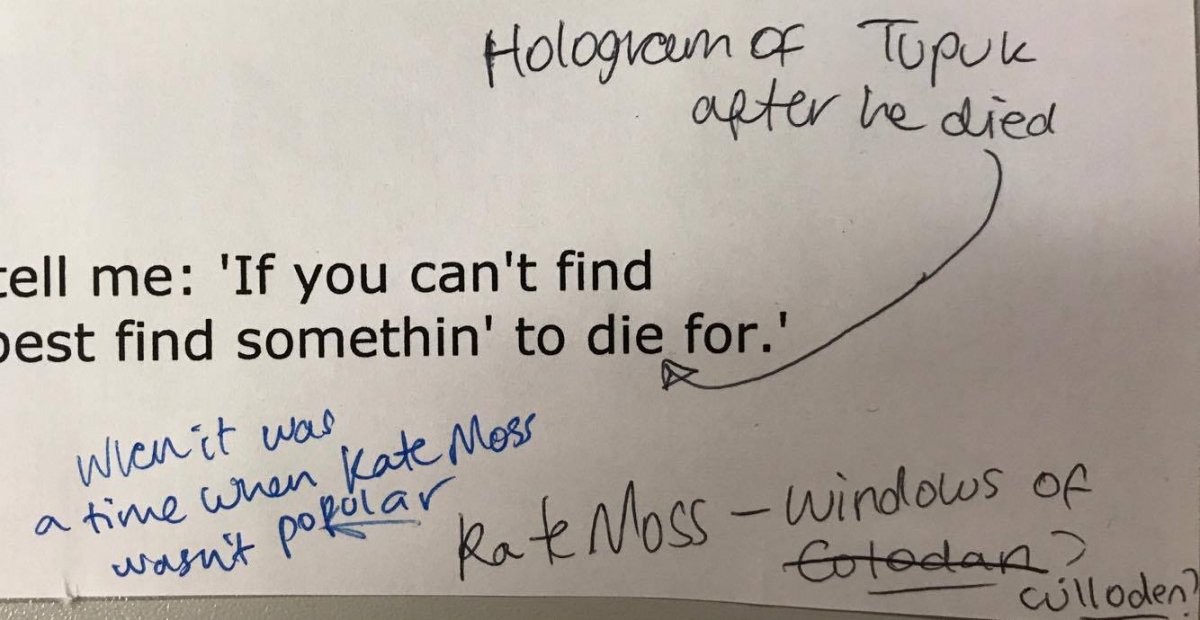 Hologram of Tupuk
after he died
tell me: 'If you can't find
best find somethin' to die for.'
When it was
a time when Kate Moss
wasn't popular
Kate Moss – Windows of
Colodan?
culloden?